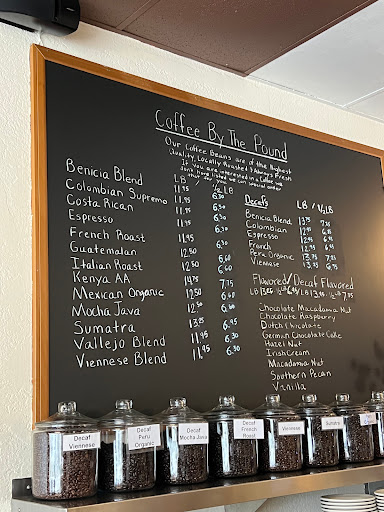 Coffee By The Pound
Our Coffee Beans are of the Highest
Quality, Locally Roasted & Always Fresh
If you are interested in a Coffee
don't have listed we can special order
that for you
LB. 1/2 LB
Benicia Blend 11.95 6.30
Colombian Supremo 11.95 6.30
Costa Rican 11.95 6.30
Espresso 11.95 6.30
French Roast 11.95 6.30
Guatemalan 12.50 6.60
Italian Roast 12.50 6.60
Kenya AA 14.75 7.75
Mexican Organic 12.50 6.60
Mocha Java 12.50 6.60
Sumatra 13.25 6.95
Vallejo Blend 11.95 6.30
Viennese Blend 11.95 6.30
Decafs LB / 1/2 LB
Benicia Blend
Colombian
Espresso
French
Peru Organic
Viennese
Flavored/Decaf Flavored
Chocolate Macadamia Nut
Chocolate Raspberry
Dutch Chocolate
German Chocolate Cake
Hazel Nut
Irish Cream
Macadamia Nut
Southern Pecan
Vanilla
Decaf
Viennese
Decaf
Peru
Organic
Decaf
Mocha Java
Decaf
French
Roast
Viennese
Sumatra